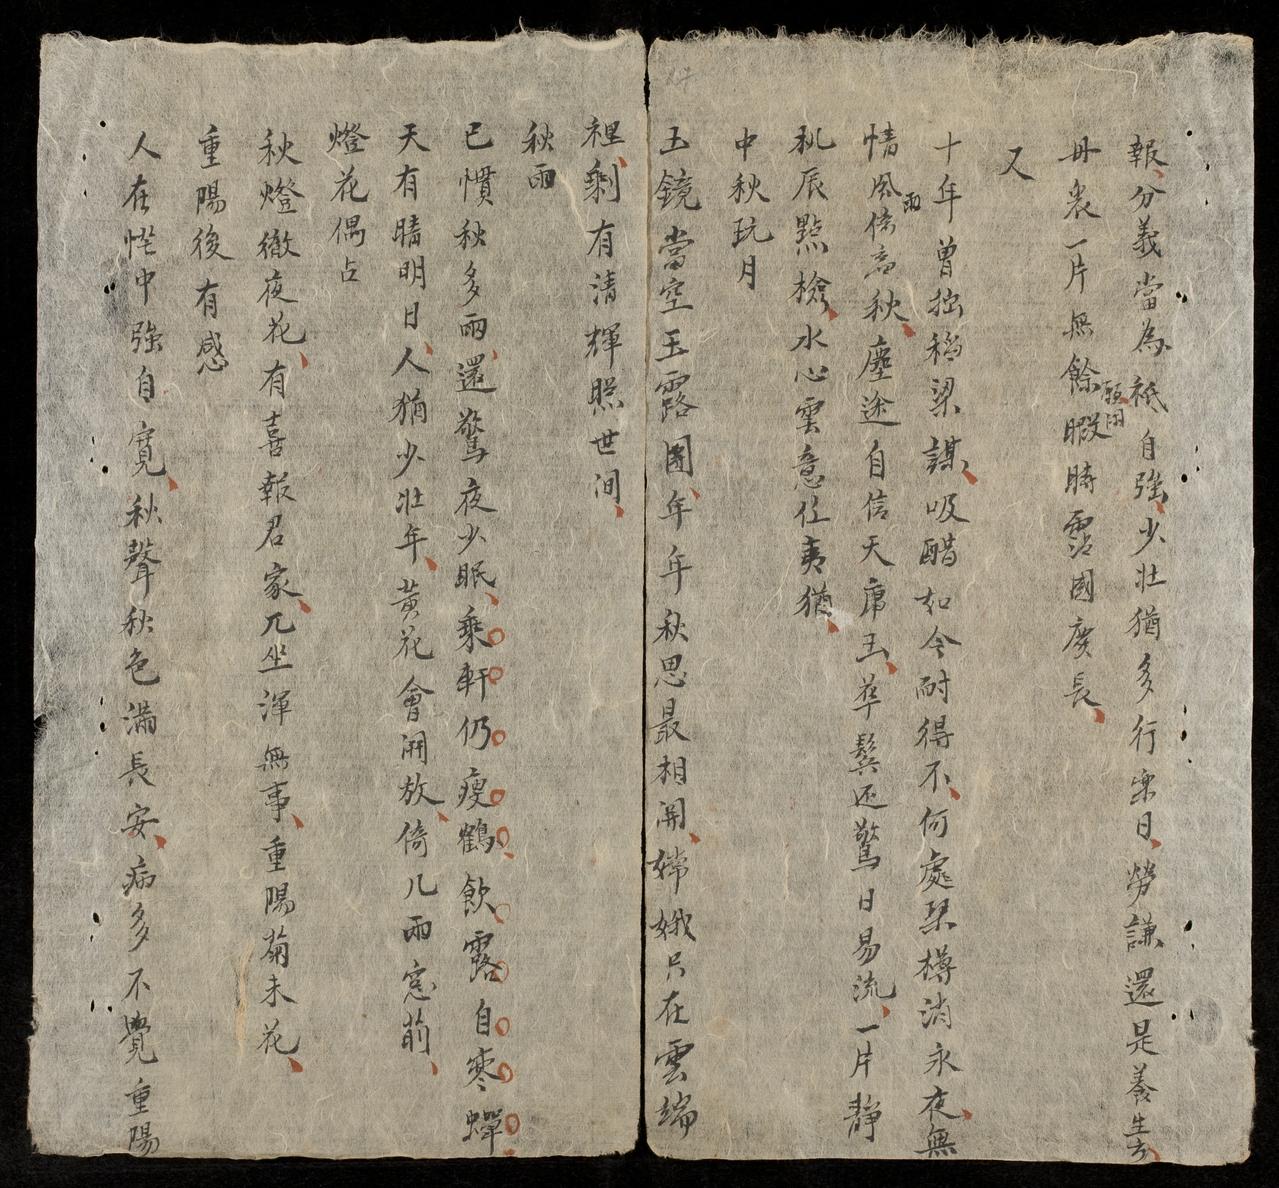 報分義當為祗自強少壯猶多行樂日勞謙還是養生方
丹衷一片無餘暇時霑國慶長
又
十年曾拙稻粱謀吸醋如今耐得不何處琴樽消永夜無
情風雨傍高秋塵途自信天庸玉華鬂還驚日易流一片靜
機辰點檢水心雲意任夷猶
中秋玩月
玉鏡當空玉露團年年秋思最相關嫦娥只在雲端
裡剩有清輝照世间
秋雨
已慣秋多雨還驚夜少眠乘軒仍瘦鶴飲露自寒蟬
天有晴明日人猶少壯年黃花會開放倚几雨窓前
燈花偶占
秋燈徹夜花有喜報君家兀坐渾無事重陽菊未花
重陽後有感
人在忙中強自寬秋聲秋色滿長安病多不覺重陽